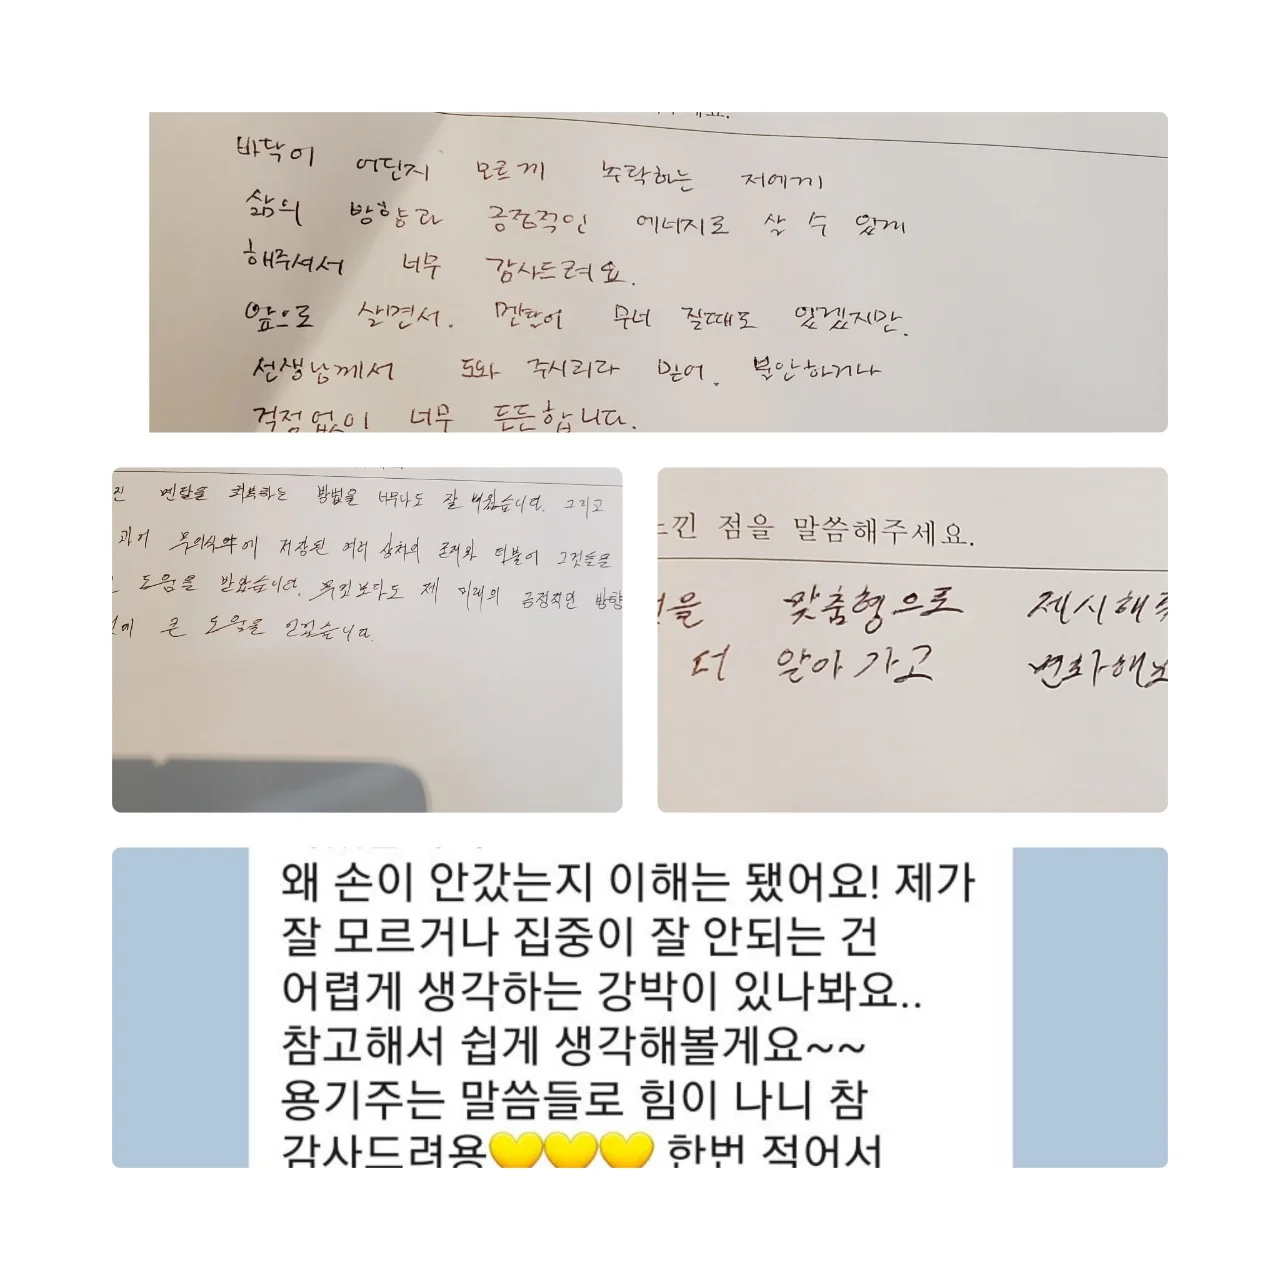 바닥이 어딘지 모르게 추락하는 저에게
삶의 방향과 긍정적인 에너지로 살 수 있게
해주셔서 너무 감사드려요.
앞으로 살면서. 멘탈이 무너 질때도 있겠지만.
선생님께서 도와 주시리라 믿어. 불안하거나
걱정없이 너무 든든합니다.
진 멘탈을 회복하는 방법을 너무나도 잘 배웠습니다. 그리고
과거 무의식에 저장된 여러 상처의 존재와 더불어 그것들을
도움을 받았습니다. 무엇보다도 제 미래의 긍정적인 방향
큰 도움을 얻었습니다.
느낀 점을 말씀해주세요.
을 맞춤형으로 제시해주
더 알아 가고 변화해
왜 손이 안갔는지 이해는 됐어요! 제가
잘 모르거나 집중이 잘 안되는 건
어렵게 생각하는 강박이 있나봐요..
참고해서 쉽게 생각해볼게요~~
용기주는 말씀들로 힘이 나니 참
감사드려용💛💛💛 한번 적어서